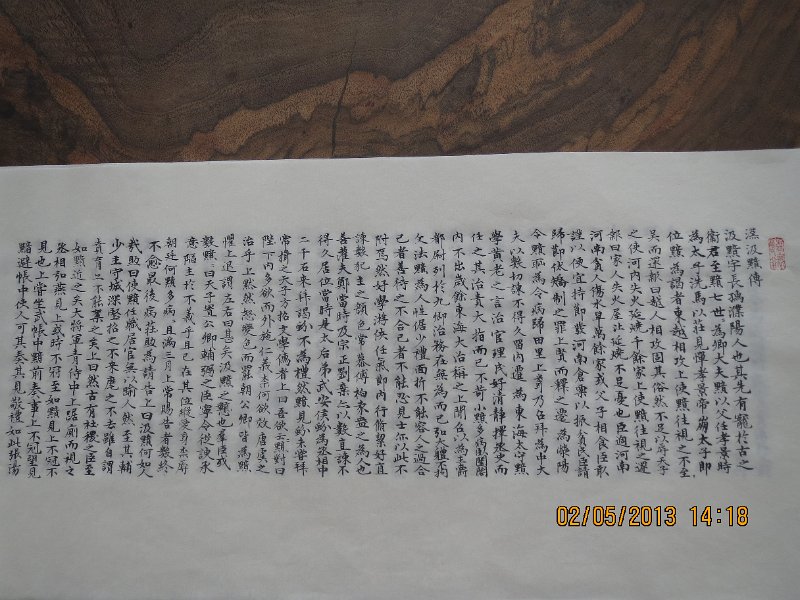 漢汲黯傳
汲黯字長孺濮陽人也其先有寵於古之
衛君至黯七世為卿大夫黯以父任孝景時
為太子洗馬以莊見憚孝景帝崩太子即
位黯為謁者東越相攻上使黯往視之不至
吳而還報曰越人相攻固其俗然不足以辱天子
之使河內失火延燒千餘家上使黯往視之還
報曰家人失火屋比延燒不足憂也臣過河南
河南貧人傷水旱萬餘家或父子相食臣敢
謹以便宜持節發河南倉粟以振貧民臣請
歸節伏矯制之罪上賢而釋之遷為滎陽
令黯恥為令病歸田里上聞乃召拜為中大
夫以數切諫不得久留內遷為東海太守黯
學黃老之言治官理民好清靜擇丞史而
任之其治責大指而已不苛小黯多病臥閨閤
內不出歲餘東海大治稱之上聞召以為主爵
都尉列於九卿治務在無為而已弘大體不拘
文法黯為人性倨少禮面折不能容人之過合
己者善待之不合己者不能忍見士亦以此不
附焉然好學游俠任氣節內行脩絜好直
諫數犯主之顏色常慕傅柏袁盎之為人也
善灌夫鄭當時及宗正劉棄亦以數直諫不
得久居位當時是太后弟武安侯蚡為丞相中
二千石來拜謁蚡不為禮然黯見蚡未嘗拜
常揖之天子方招文學儒者上曰吾欲云云黯對曰
陛下內多欲而外施仁義柰何欲效唐虞之
治乎上默然怒變色而罷朝公卿皆為黯
懼上退謂左右曰甚矣汲黯之戇也羣臣或
數黯黯曰天子置公卿輔弼之臣寧令從諛承
意陷主於不義乎且已在其位縱愛身柰辱
朝廷何黯多病病且滿三月上常賜告者數終
不愈最後病莊助為請告上曰汲黯何如人
哉助曰使黯任職居官無以踰人然至其輔
少主守城深堅招之不來麾之不去雖自謂
賁育亦不能奪之矣上曰然古有社稷之臣至
如黯近之矣大將軍青侍中上踞廁而視之
丞相弘燕見上或時不冠至如黯見上不冠不
見也上嘗坐武帳中黯前奏事上不冠望見
黯避帳中使人可其奏其見敬禮如此張湯
02/05/2013 14:18